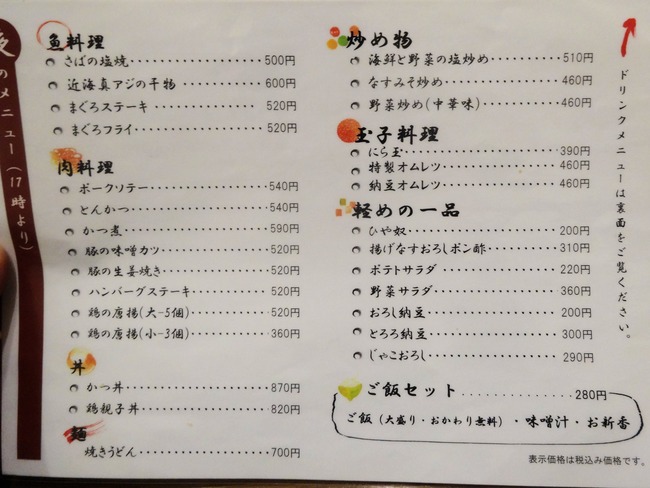 夜のメニュー(17時より)
魚料理
さばの塩焼 500円
近海真アジの干物 600円
まぐろステーキ 520円
まぐろフライ 520円
肉料理
ポークソテー 540円
とんかつ 540円
かつ煮 590円
豚の味噌カツ 520円
豚の生姜焼き 520円
ハンバーグステーキ 520円
鶏の唐揚(大-5個) 520円
鶏の唐揚(小-3個) 360円
丼
かつ丼 870円
鶏親子丼 820円
麺
焼きうどん 700円
炒め物
海鮮と野菜の塩炒め 510円
なすみそ炒め 460円
野菜炒め(中華味) 460円
玉子料理
にら玉 390円
特製オムレツ 460円
納豆オムレツ 460円
軽めの一品
ひや奴 200円
揚げなすおろしポン酢 310円
ポテトサラダ 220円
野菜サラダ 360円
おろし納豆 200円
とろろ納豆 300円
じゃこおろし 290円
ご飯セット 280円
ご飯(大盛り・おかわり無料)・味噌汁・お新香
ドリンクメニューは裏面をご覧ください。
表示価格は税込み価格です。